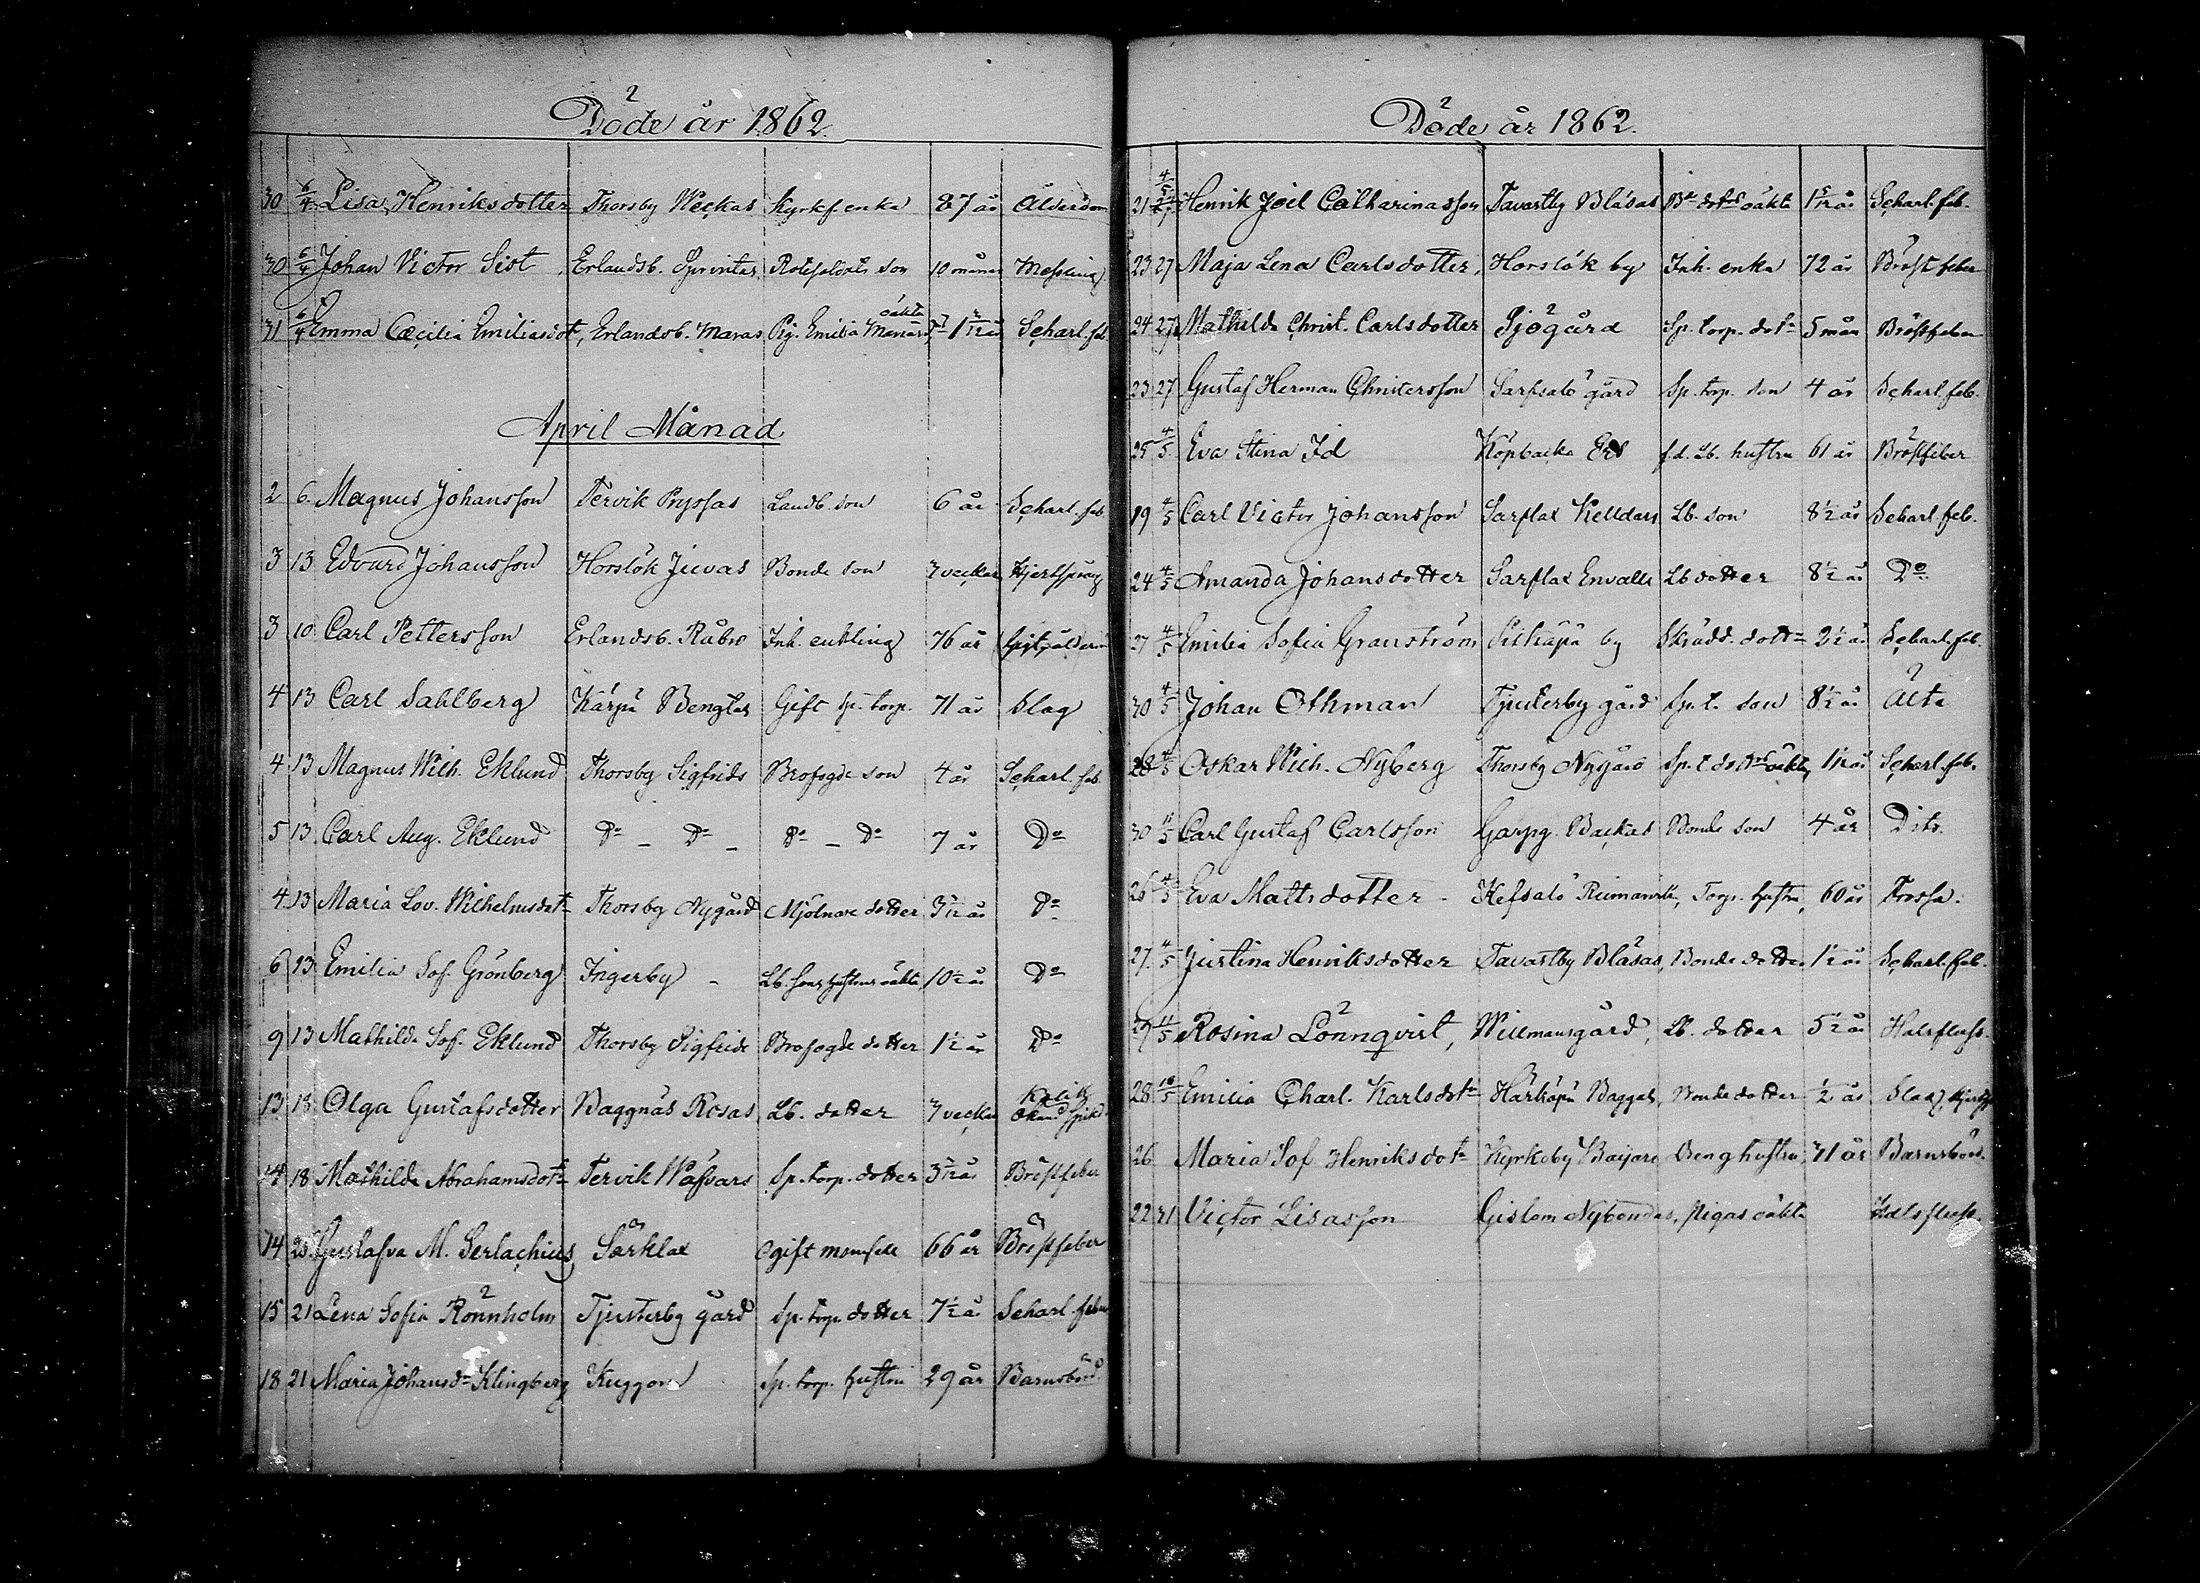 Döde år 1862.
30 6/4 Lisa Henriksdotter Thorsby Weckas Kyrkf. enka 87 år Ålderdom
30 6/4 Johan Victor Sist Erlandsb. Rotesoldats son 10 månar Messling
31 6/4 Emma Cæcilia Emiliasdot, Erlandsb. Maras Pig. Emilia oäkta 1 år Scharl. feb.
April Månad
2 6. Magnus Johansson Tervik Pryssas Landb. son 6 år Scharl. feb.
3 13 Edvard Johansson Horslök Juvas Bonde son 3 veckar Hjertsprång
3 10 Carl Pettersson Erlandsb. Råbro Inh. enkling 76 år
4 13 Carl Sahlberg Kärpä Bengtas Gift sp. torp. 71 år Slag
4 13 Magnus Wilh. Eklund Thorsby Sigfrids Brofogde son 4 år Scharl. feb.
5 13. Carl Aug. Eklund Do - Do - Do - Do 7 år Do
4 13 Maria Lov. Wilhelmsdotr Thorsby Nygård Mjölnare dotter 3 1/2 år Do
6 13 Emilia Sof. Grönberg Ingerby - Lb. sons hustrus oäkta 10 1/2 år Do
9 13 Mathilda Sof. Eklund Thorsby Sigfrids Brofogde dotter 1 1/2 år Do
13 18 Olga Gustafsdotter Baggnäs Rosas Lb. dotter 3 veckar
14 18 Mathilda Abrahamsdotr Tervik Wäfvars Sp. torp. dotter 3 1/2 år Bröstfeber
14 25 Gustafva M. Serlachius, Särklax Ogift mamsell 66 år Bröstfeber
15 21 Lena Sofia Rönnholm Tjusterby gård Sp. torp. dotter 7 1/2 år Scharl. feber
18 21 Maria Johansdr Klingberg Kuggom Sp. torp. hustru 29 år Barnsbörd
Döde år 1862.
21 4/5 Henrik Joel Catharinasson Tavastby Blåsas oäkta 1 år Scharl. feb.
23 27 Maja Lena Carlsdotter, Horslök by Inh. enka 72 år Bröst feber
24 27 Mathilda Christ. Carlsdotter Sjögård Sp. torp. dotr 5 mån Bröstfeber
23 27 Gustaf Herman Christersson Sarfsalö gård Sp. torp. son 4 år Scharl. feb.
25 4/5 Eva Stina Id Köpbacka f.d. Lb. hustru 61 år Bröstfeber
19 4/5 Carl Victor Johansson Sarflax Kelldars Lb. son 8 1/2 år Scharl. feb.
24 4/5 Amanda Johansdotter Sarflax Envalls Lb dotter 8 1/2 år Do
27 4/5 Emilia Sofia Granström by Skrädd. dottr 2 1/2 år Scharl. feb.
30 4/5 Johan Othman Tjusterby gård Sp. t. son 8 1/2 år Älta
28 4/5 Oskar Wilh. Nyberg Thorsby Nygård Sp. t. oäkta, 1 1/2 år Scharl. feb.
30 11/5 Carl Gustaf Carlsson Garpg. Backas Bonde son 4 år Dito
26 4/5 Eva Mattsdotter - Kefsalö Torp. hustru, 60 år Frossa.
27. 4/5 Justina Henriksdotter Tavastby Blåsas, Bonde dotter 1 1/2 år Scharl. feb.
29 11/5 Rosina Lönnqvist, Willmansgård, Lb. dotter 5 1/2 år Halsfluss.
28 18/5 Emilia Charl. Karlsdotr Härkäpä Baggas, Bonde dotter 1/2 år Slag,
26 Maria Sof. Henriksdotr Kyrkoby Baijars Dreng hustru, 31 år Barnsbörd.
22 31 Victor Lisasson Gislom Nybondas, pigas oäkta Halsfluss.